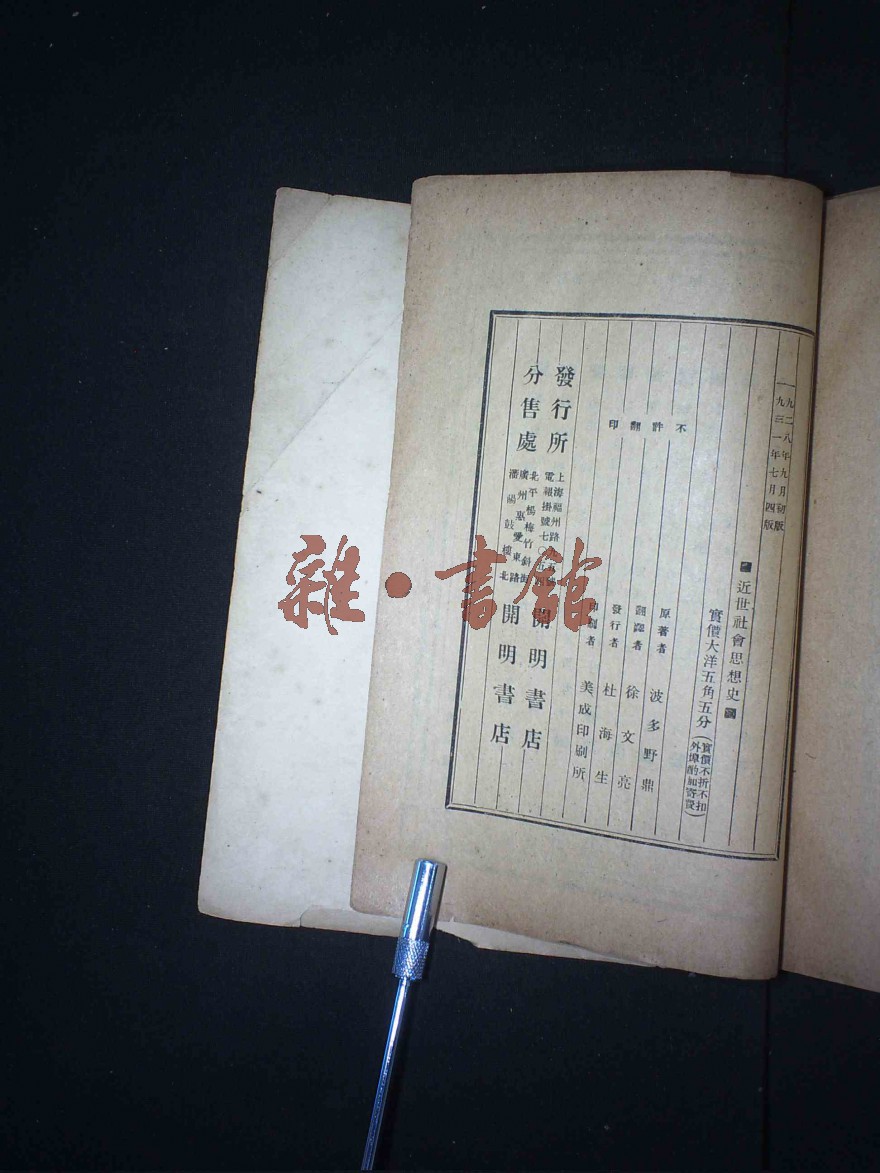 一九二八年九月初版
一九三一年七月四版
近世社會思想史
實價大洋五角五分
(實價不折不扣
外埠酌加寄費)
不許翻印
原著者 波多野鼎
翻譯者 徐文亮
發行者 杜海生
印刷者 美成印刷所
發行所
上海福州路
電報掛號七〇五四
開明書店
分售處
北平楊梅竹斜街
廣州惠愛東路
瀋陽鼓樓北
開明書店
雜·書館